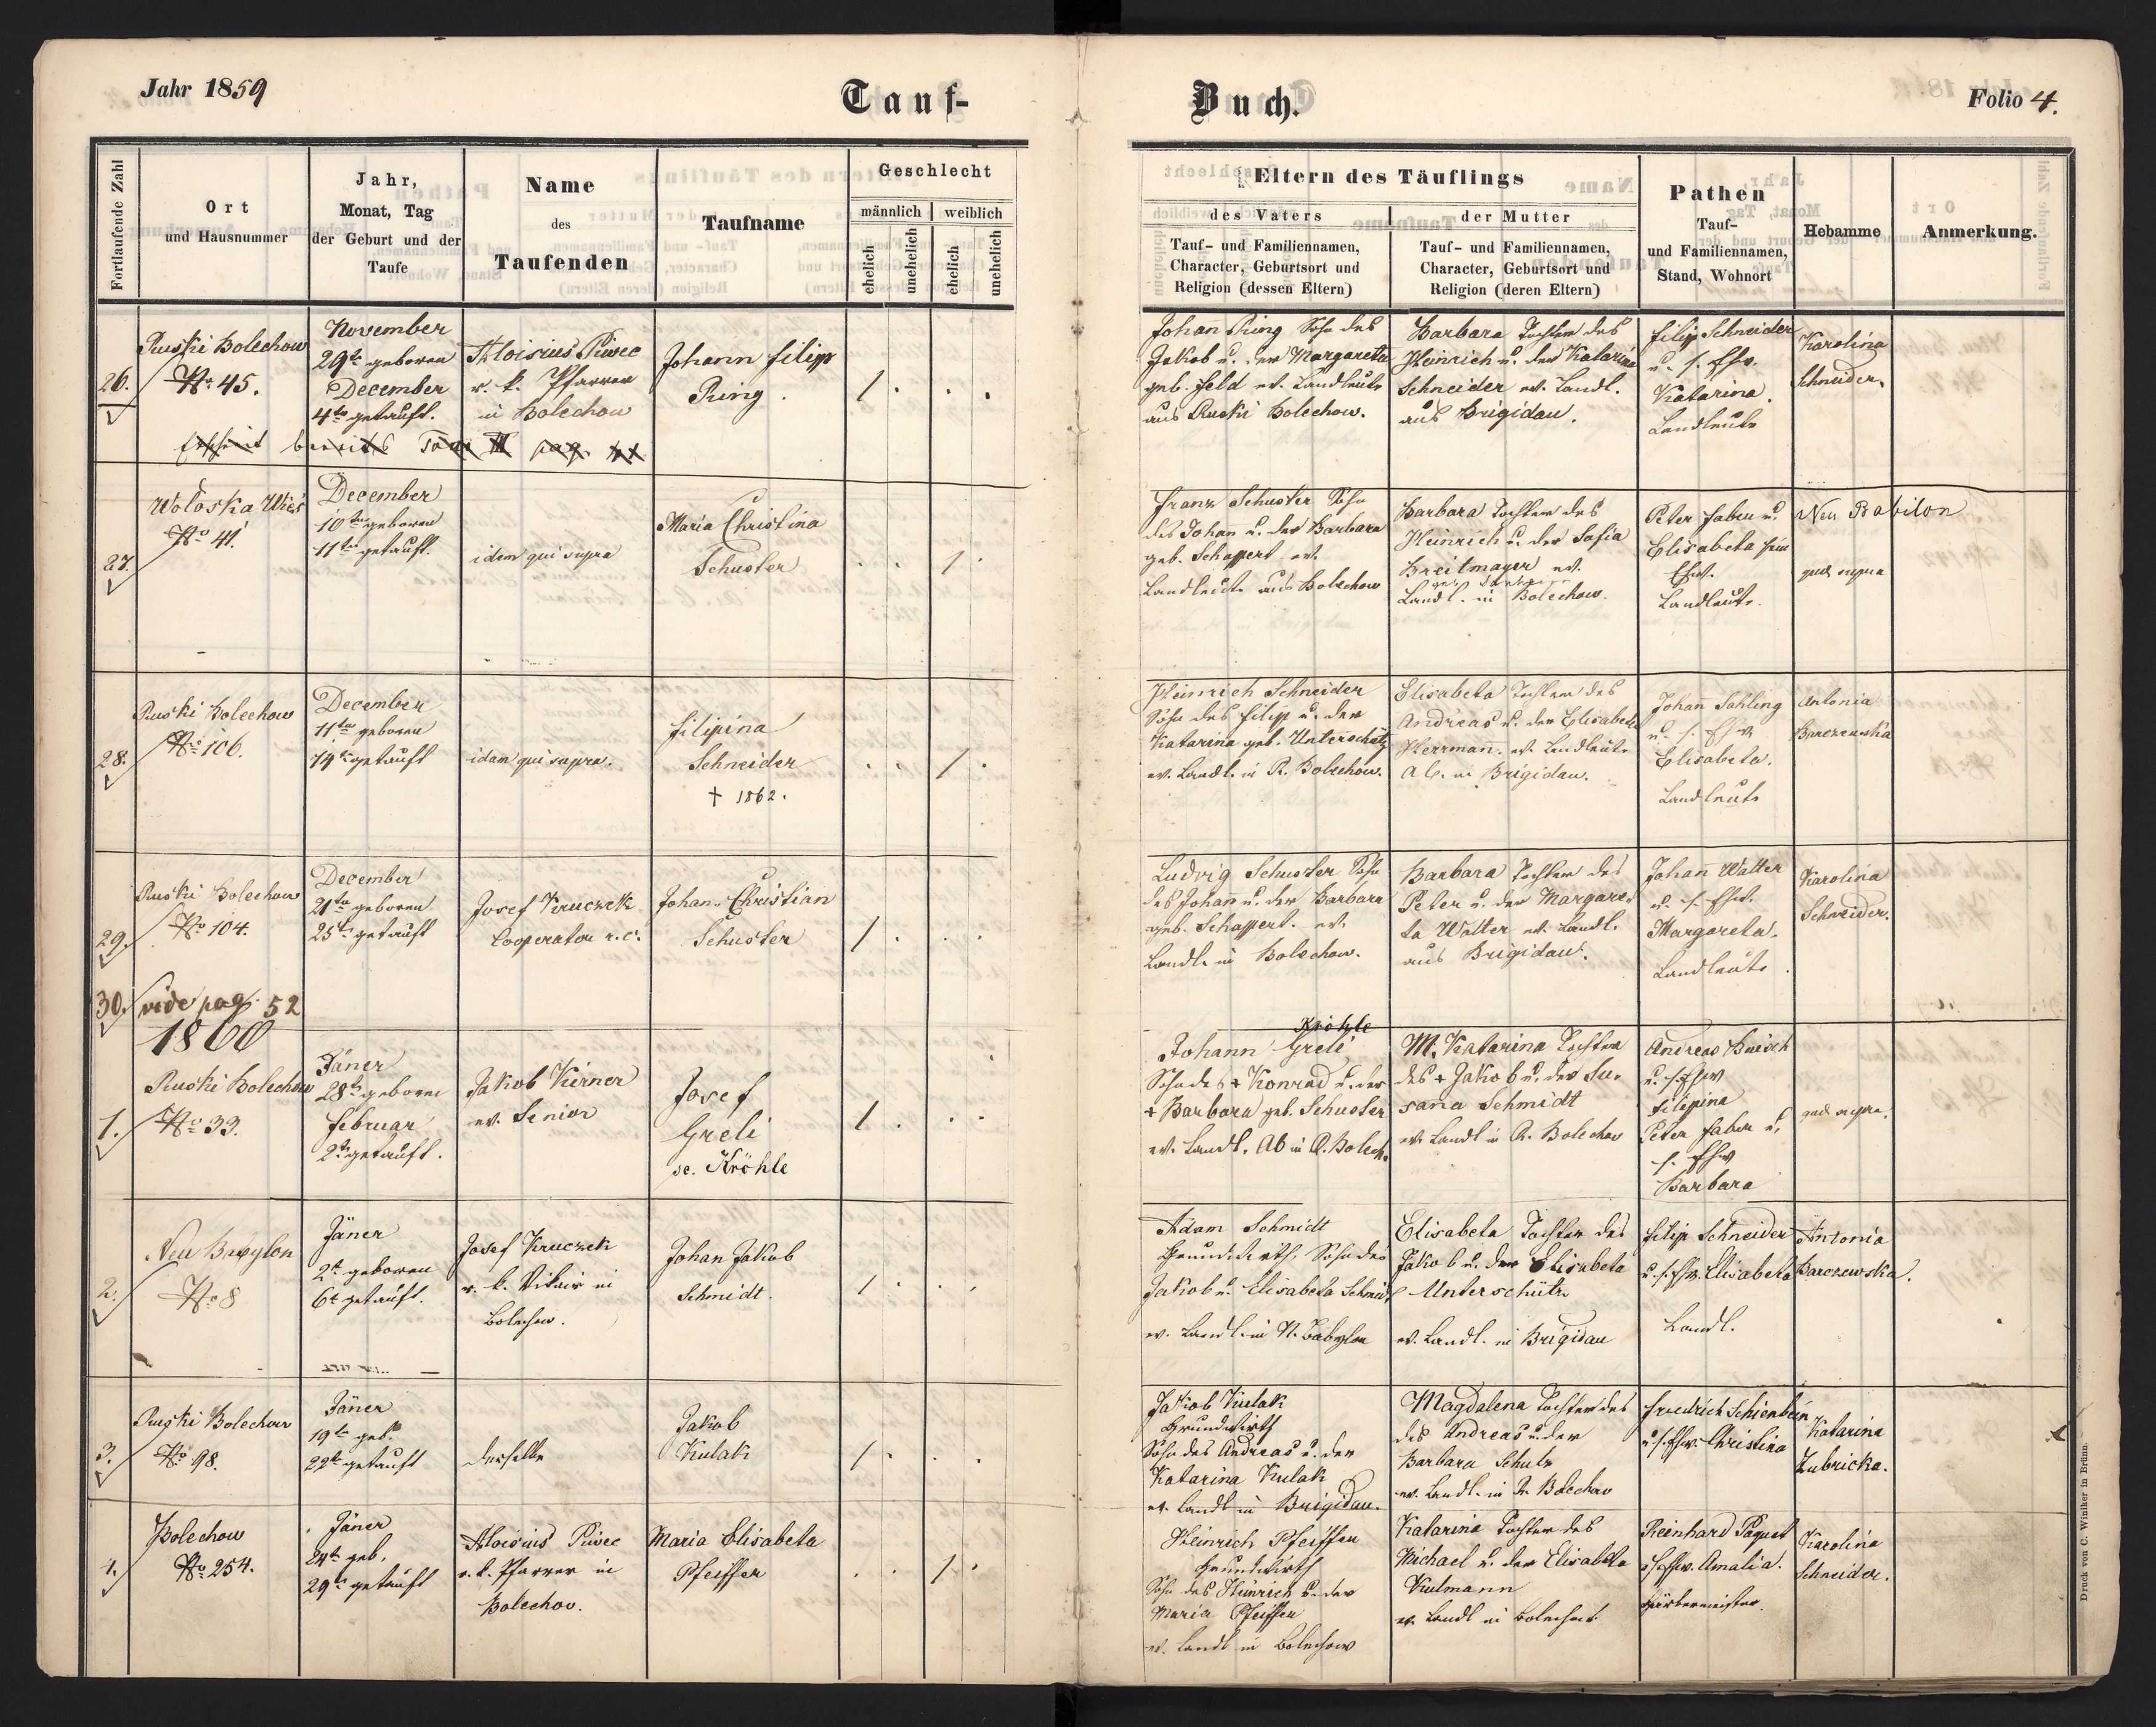 Jahr 1859
Tauf-
Buch.
Folio 4.
Fortlaufende Zahl
Ort
und Hausnummer
Jahr,
Monat, Tag
der Geburt und der
Taufe
Name
des
Taufenden
Taufname
Geschlecht
männlich
weiblich
ehelich
unehelich
ehelich
unehelich
Eltern des Täuflings
des Vaters
Tauf- und Familiennamen,
Character, Geburtsort und
Religion (dessen Eltern)
der Mutter
Tauf- und Familiennamen,
Character, Geburtsort und
Religion (deren Eltern)
Pathen
Tauf-
und Familiennamen,
Stand, Wohnort
Hebamme
Anmerkung.
26.
Ruski Bolechow
No 45.
November
29te geboren
December
4te getauft.
Aloisius Piwec
r. k. Pfarrer
in Bolechow
Johann Filipp
Ring.
1
Johann Ring Sohn des
Jakob u. der Margareta
geb. Feld ev. Landleute
aus Ruski Bolechow.
Barbara Tochter des
Heinrich u. der Katarina
Schneider ev. Landl.
aus Brigidau.
Filip Schneider
u. s. Ehw.
Katarina.
Landleute
Karolina
Schneider.
bereits pag.
27.
Woloska Wies
No 41.
December
10ten geboren
11ten getauft.
idem qui supra
Maria Christina
Schuster
1
Franz Schuster Sohn
des Johann u. der Barbara
geb. Schappert ev.
Landleute aus Bolechow
Barbara Tochter des
Heinrich u. der Sofia
Breitmayer ev.
Landl. in Bolechow.
Peter Faber u.
Elisabeta sein
Ehw.
Landleute.
Neu Babilon
quae supra
28.
Ruski Bolechow
No 106.
December
11ten geboren
14te getauft
idem qui supra.
Filipina
Schneider
† 1862.
1
Heinrich Schneider
Sohn des Filipp u. der
Katarina geb. Unterschütz
ev. Landl. in R. Bolechow.
Elisabeta Tochter des
Andreas u. der Elisabeta
Herrmann. ev. Landleute
A.C. in Brigidau.
Johann Sahling
u. s. Ehw
Elisabeta.
Landleute
Antonia
Barczewska
29.
Ruski Bolechow
No 104.
December
21te geboren
25te getauft
Josef Kruczek
Cooperator r. c.
Johan Christian
Schuster
1
Ludvig Schuster Sohn
des Johann u. der Barbara
geb. Schappert. ev.
Landl. in Bolechow.
Barbara Tochter des
Peter u. der Margare-
ta Walter ev. Landl.
aus Brigidau.
Johann Walter
u. s. Ehw.
Margareta.
Landleute
Karolina
Schneider.
30.
vide pag. 52
1860
1.
Ruski Bolechow
No 33.
Jäner
28te geboren
Februar
2te getauft.
Jakob Kerner
ev. Senior
Josef
Greli
se. Kröhle
1
Kröhle
Johann Greli
Sohn des + Konrad u. der
+ Barbara geb. Schuster
ev. Landl. AB in R. Bolech.
M. Katarina Tochter
des + Jakob u. der Su-
sana Schmidt
ev. Landl in R. Bolechow
Andreas
u. s. Ehw
Filipina
Peter Faber u.
s. Ehw
Barbara
quae supra.
2.
Neu Babylon
No 8
Jäner
2te geboren
6te getauft.
Josef Kruczek
r. k. Vikair in
Bolechow.
Johan Jakob
Schmidt.
1
Adam Schmidt
Grundwirth, Sohn des
Jakob u. Elisabeta Schmidt
ev. Landl. in N. Babylon
Elisabeta Tochter des
Jakob u. der Elisabeta
Unterschütz
ev. Landl. in Brigidau
Filip Schneider
u. s. Ehw. Elisabeta
Landl.
Antonia
Barczewska.
3.
Ruski Bolechow
No 98.
Jäner
19te geb.
22te getauft
derselbe
Jakob
Kulak
1
Jakob Kulak
Grundwirth
Sohn des Andreas u. der
Katarina Kulak
ev. Landl in Brigidau.
Magdalena Tochter des
des Andreas u. der
Barbara Schulz
ev. Landl. in R. Bolechow
Friedrich Schienbein
u. s. Ehw. Christina
Katarina
Zubricka.
4.
Bolechow
No 254.
Jäner
24te geb.
29te getauft
Aloisius Piwec
r. k. Pfarrer in
Bolechow.
Maria Elisabeta
Pfeiffer
1
Heinrich Pfeiffer
Grundwirth
Sohn des Heinrich u. der
Maria Pfeiffer
ev. Landl in Bolechow
Katarina Tochter des
Michael u. der Elisabeta
Kulmann
ev. Landl in Bolechow
Reinhard Paquet
s. Ehw. Amalia.
Färbermeister
Karolina
Schneider.
Druck von C. Winiker in Brünn.